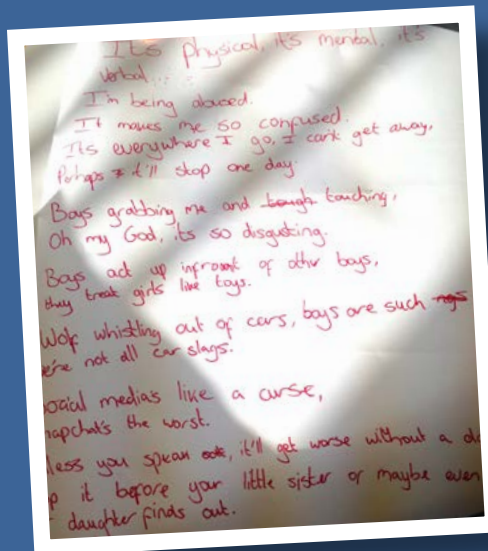 Its physical, it's mental, it's
verbal....
I'm being abused.
It makes me so confused.
Its everywhere I go, I can't get away,
Perhaps it'll stop one day.
Boys grabbing me and touching,
Oh my God, its so disgusting.
Boys act up infront of other boys,
they treat girls like toys.
Wolf whistling out of cars, boys are such
we're not all car slags.
social media's like a curse,
snapchat's the worst.
less you speak it'll get worse without a
it before your little sister or maybe even
daughter finds out.